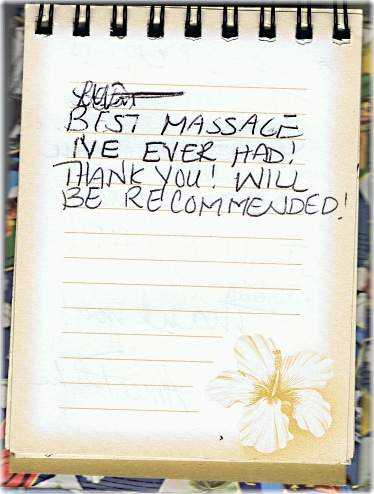 BEST MASSAGE
I'VE EVER HAD!
THANK YOU! WILL
BE RECOMMENDED!